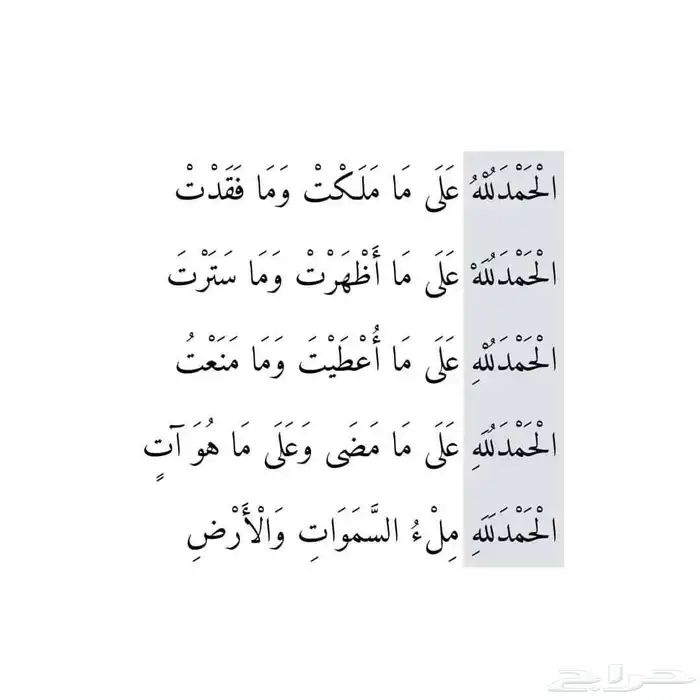 الْحَمْدَلُلْهُ عَلَى مَا مَلَكْتْ وَمَا فَقَدْتْ
الْحَمْدَلُلَهْ عَلَى مَا أَظْهَرْتْ وَمَا سَتَرْتَ
الْحَمْدَلُلْهِ عَلَى مَا أُعْطَيْتَ وَمَا مَنَعْتُ
الْحَمْدَلُلَهِ عَلَى مَا مَضَى وَعَلَى مَا هُوَ آتٍ
الْحَمْدَلَلَهِ مِلْءُ السَّمَوَاتِ وَالْأَرْضِ
حراج